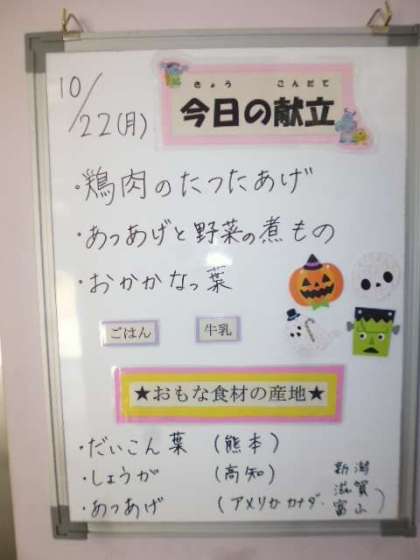 10/22(月)
きょう こんだて
今日の献立
・鶏肉のたつたあげ
・あつあげと野菜の煮もの
・おかかなっ葉
ごはん 牛乳
★おもな食材の産地★
・だいこん葉 (熊本)
・しょうが (高知)
・あつあげ (アメリカ カナダ 新潟 滋賀 富山)